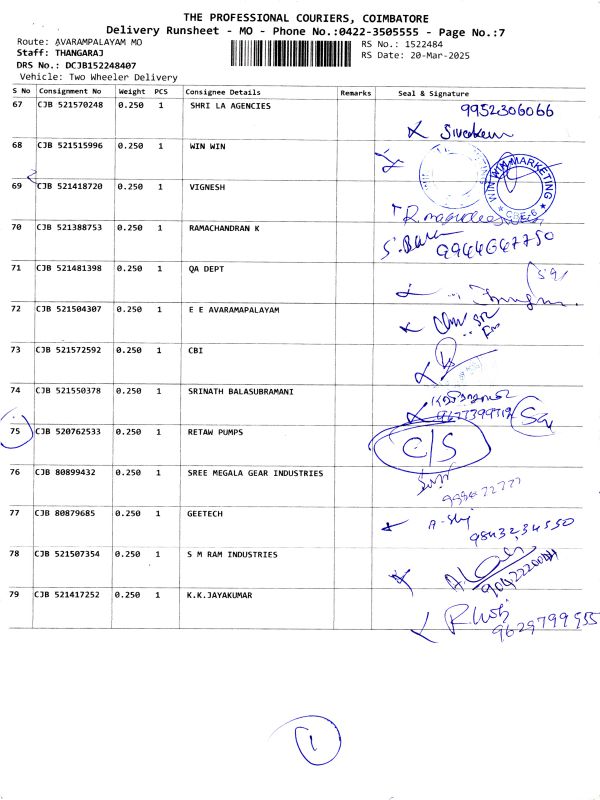 THE PROFESSIONAL COURIERS, COIMBATORE
Delivery Runsheet - MO - Phone No.:0422-3505555 - Page No.:7
Route: AVARAMPALAYAM MO RS No.: 1522484
Staff: THANGARAJ RS Date: 20-Mar-2025
DRS No.: DCJB152248407
Vehicle: Two Wheeler Delivery
S No Consignment No Weight PCS Consignee Details Remarks Seal & Signature
67 CJB 521570248 0.250 1 SHRI LA AGENCIES 9952306066
68 CJB 521515996 0.250 1 WIN WIN
WIN WIN MARKETING
CBE-6
69 CJB 521418720 0.250 1 VIGNESH
70 CJB 521388753 0.250 1 RAMACHANDRAN K
71 CJB 521481398 0.250 1 QA DEPT
72 CJB 521504307 0.250 1 E E AVARAMAPALAYAM
73 CJB 521572592 0.250 1 CBI
74 CJB 521550378 0.250 1 SRINATH BALASUBRAMANI
75 CJB 520762533 0.250 1 RETAW PUMPS C/S
76 CJB 80899432 0.250 1 SREE MEGALA GEAR INDUSTRIES
77 CJB 80879685 0.250 1 GEETECH 9843234550
78 CJB 521507354 0.250 1 S M RAM INDUSTRIES
79 CJB 521417252 0.250 1 K.K.JAYAKUMAR
9629799955
1